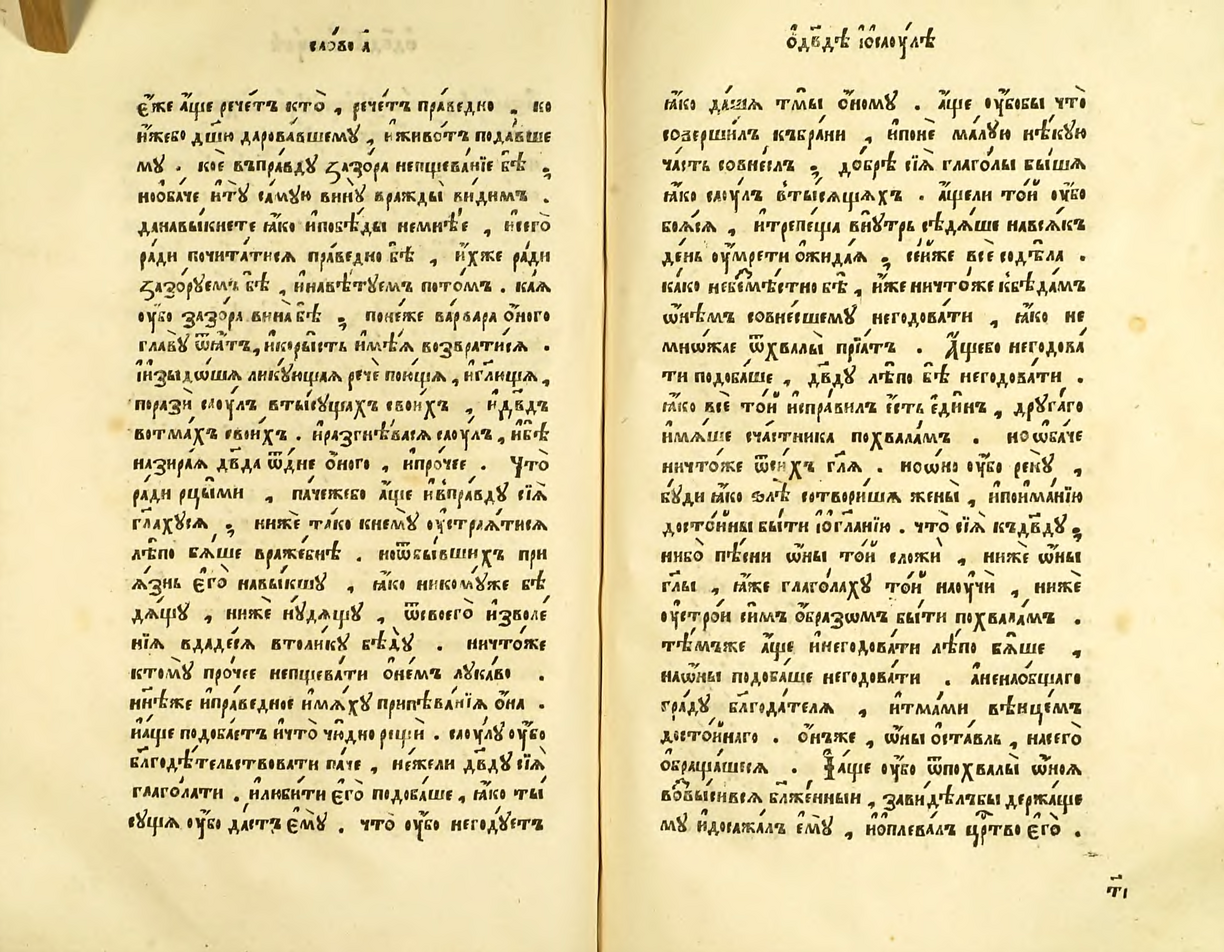 сло́во а҃
є҆́же а҆́ще рече́тъ кто̀ , рече́тъ пра́ведно , ко
и҆́жебо дш҃ю дарова́вшемꙋ , и҆живо́тъ пода́вше
мꙋ . коѐ въпра́вдꙋ заз́ора непщева́нїе бѣ̀ ;
нооба́че и҆тꙋ̀ са́мꙋю винꙋ̀ вражды̀ ви́димъ .
данавы́кнете ꙗ҆́ко и҆побѣ́ды неме́нѣе , и҆сего̀
ра́ди почита́тисѧ пра́ведно бѣ̀ , и҆́хже ра́ди
зазорꙋ́емъ бѣ̀ , и҆навѣ́тꙋемъ пото́мъ . ка́ѧ
оу҆́бо зазо́ра вина̀ бѣ̀ ; поне́же ва́рвара о҆́ного
главꙋ̀ ѿѧ́тъ , и҆коры́сть и҆мѣ́ѧ возврати́сѧ .
и҆изыдо́шѧ ликꙋ́ющаѧ рече пою́щѧ , и҆гл҃щѧ ,
поразѝ саоу́лъ втысꙋ́щахъ свои́хъ , и҆дв҃дъ
вотма́хъ свои́хъ . и҆разгнѣ́васѧ саоу́лъ , и҆бѣ̀
назира́ѧ дв҃да ѿдне о҆́ного , и҆про́чее . Что̀
ра́ди рцы́ми , па́чежебо а҆́ще и҆въпра́вдꙋ сїѧ̀
гл҃ахꙋсѧ ; нижѐ та́ко кнемꙋ̀ оу҆страѧ́тисѧ
лѣ́по бѧ́ше враже́бнѣ . ноѿбы́вшихъ при
ѧ́знь є҆го̀ навы́кшꙋ , ꙗ҆́ко никомꙋ́же бѣ
дѧ́щꙋ , нижѐ нꙋ́дѧщꙋ , ѿсвоего̀ и҆зволе́
нїѧ вдаде́сѧ втоли́кꙋ бѣ́дꙋ . ничто́же
ктомꙋ̀ про́чее непщева́ти о҆не́мъ лꙋка́во .
нн҃ѣже и҆пра́ведное и҆мѧ́хꙋ припѣва́нїѧ о҆на̀ .
и҆а́ще подоба́етъ и҆что̀ чю́дно рещѝ . саоу́лꙋ оу҆́бо
бл҃годѣ́тельствовати па́че , не́жели дв҃дꙋ сїѧ̀
глаго́лати . и҆люби́ти є҆го̀ подоба́ше , ꙗ҆́ко ты́
сꙋщѧ оу҆́бо да́стъ є҆мꙋ̀ . что̀ оу҆́бо негодꙋ́етъ
ѻ҆дв҃дѣ и҆ѻ҆саоу́лѣ
ꙗ҆́ко даша̀ тмы̀ о҆́номꙋ . а҆́ще оу҆́бобы что̀
соверши́лъ къбра́ни , и҆понѐ ма́лꙋю нѣ́кꙋю
ча́сть совне́слъ ; до́брѣ сїѧ̀ глаго́лы бы́шѧ
ꙗ҆́ко саоу́лъ втысѧ́щѧхъ . а҆́щели то́й оу҆́бо
боѧ́сѧ , и҆трепе́ща внꙋ́трь сѣдѧ́ше навсѧ́къ
де́нь оу҆мре́ти ѡ҆жида́ѧ ; се́йже всѐ содѣ́ла .
ка́ко небезмѣ́стно бѣ̀ , и҆́же ничто́же кбѣда́мъ
ѡ҆нѣ́мъ совне́сшемꙋ негодова́ти , ꙗ҆́ко не
мно́жае ѿхвалы̀ прїа́тъ . А҆́щебо негодова́
ти подоба́ше , дв҃дꙋ лѣ́по бѣ̀ негодова́ти .
ꙗ҆́ко всѐ то́й и҆спра́вилъ є҆́сть є҆ди́нъ , дрꙋга́го
и҆мѧ́ше сча́стника похвала́мъ . ноѡба́че
ничто́же ѿси́хъ гл҃ѧ . ноѡно̀ оу҆́бо рекꙋ̀ ,
бꙋ́ди ꙗ҆́ко ѕлѣ̀ сотвори́шѧ жены̀ , и҆поима́нїю
досто́йны бы́ти и҆ѻ҆гла́нїю . что̀ сїѧ̀ къдв҃дꙋ ;
нибо̀ пѣ́сни ѡ҆́ны то́й сложѝ , нижѐ ѡ҆́ны
гл҃ы , ꙗ҆̀же глаго́лахꙋ то́й наоу́чи , нижѐ
оу҆стро́и си́мъ ѻ҆́бразѡмъ бы́ти похвала́мъ .
тѣ́мъже а҆́ще и҆негодова́ти лѣ́по бѧ́ше ,
наѡ́ны подоба́ше негодова́ти . а҆ненаѻ́бщаго
гра́дꙋ бл҃года́телѧ , и҆тма́ми вѣнце́мъ
досто́йнаго . ѻ҆́нъже , ѡ҆́ны ѡ҆ста́вль , насего̀
ѻ҆браща́шесѧ . И҆а҆́ще оу҆́бо ѿпохвалы̀ ѡ҆́ноѧ
вовы́сивсѧ бл҃же́нныи , зави́дѣлъбы держа́ще
мꙋ и҆досажа́лъ є҆мꙋ̀ , и҆оплева́лъ црⷭ҇тво є҆го̀ .
т҃і